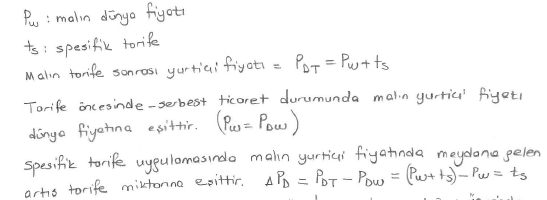 Pw : malın dünya fiyatı
ts : spesifik tarife
Malın tarife sonrası yurtiçi fiyatı = PDT = Pw + ts
Tarife öncesinde - serbest ticaret durumunda malın yurtiçi fiyatı
dünya fiyatına eşittir. (Pw = PDW)
Spesifik tarife uygulamasında malın yurtiçi fiyatında meydana gelen
artış tarife miktarına eşittir. ΔPD = PDT - PDW = (Pw + ts) - Pw = ts